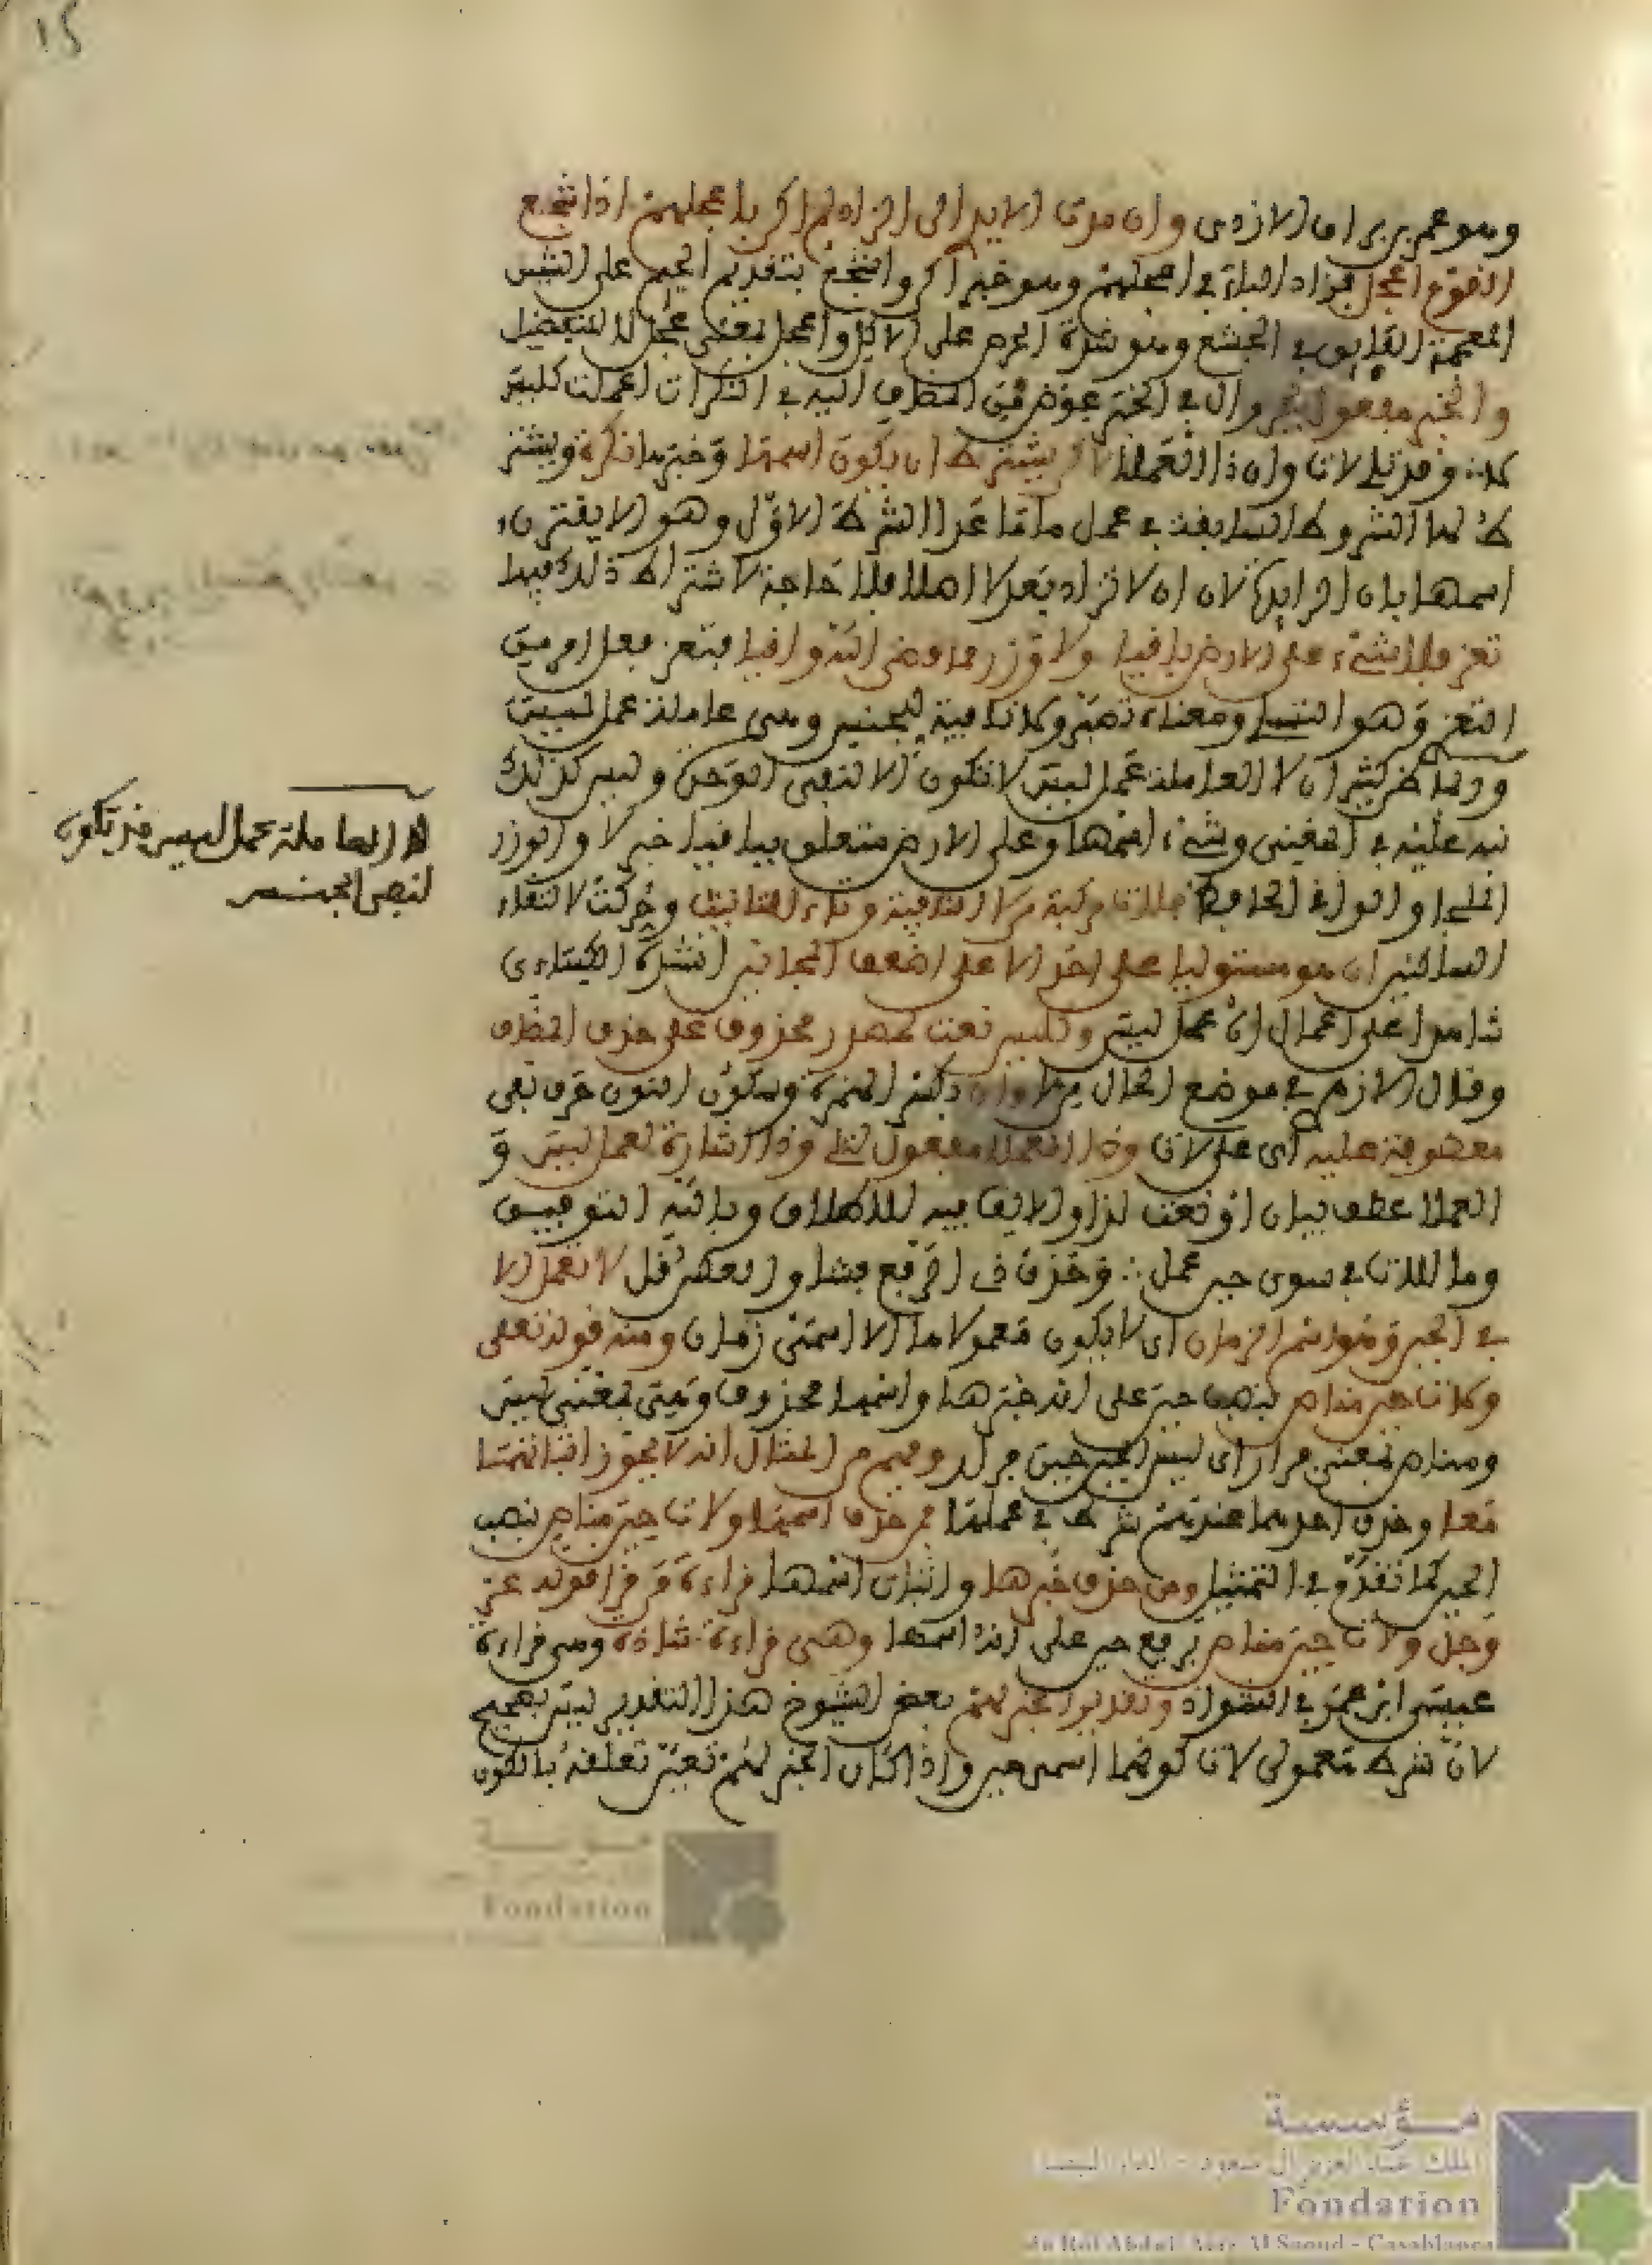 15
وهو عمر بن براق الازدي وان مدت الايدي الى الزاد لم اكن باعجلهم اذ اجشع
القوم اعجل فزاد الباء في اعجلهم وهو خبر اكن واجشع بتقديم الجيم على الشين
المعجمة الفايق في الجشع وهو شدة الحرص على الاكل واعجل بمعنى عجل لا للتفضيل
والخبر مفعول بجر وال في الخبر عوض من المضاف اليه في النكرات اعملت كليس
لا وقد تلي لات وان ذا العملا يشترط ان يكون اسمها وخبرها نكرة ويشتر
ط لها الشروط السابقة في عمل ما ما عدا الشرط الاول وهو ان لا يقترن
اسمها بان الزايدة لان ان لا تزاد بعد لا اصلا فلا حاجة لاشتراط ذلك فيها
تعز فلا شيء على الارض باقيا ولا وزر مما قضى الله واقيا فتعز فعل امر من
التعزي وهو التسلي ومعناه تصبر ولا نافية للجنس وهي عاملة عمل ليس
وربما ظن كثير ان لا العاملة عمل ليس لا تكون الا لنفي الوحدة وليس كذلك
نبه عليه في المغني وشيء اسمها وعلى الارض متعلق بباقيا وباقيا خبر لا والوزر
الملجا والواقي الحافظ فلات مركبة من لا النافية وتاء التانيث وحركت لالتقاء
الساكنين ان هو مستوليا على احد الا على اضعف المجانين انشده الكسائي
شاهدا على اعمال ان عمل ليس وكليس نعت لمصدر محذوف على حذف المضاف
وقال الازهري في موضع الحال من لا وان بكسر الهمزة وسكون النون حرف نفي
معطوفة عليه اي على لات وذا العملا مفعول تلي وذا اشارة لعمل ليس و
العملا عطف بيان او نعت لذا والالف فيه للاطلاق وبالله التوفيق
وما للات في سوى حين عمل ∴ وحذف ذي الرفع فشا والعكس قل لا تعمل الا
في الحين ومرادفه الزمان اي لا يكون معمولاها الا اسمي زمان ومنه قوله تعلى
ولات حين مناص بنصب حين على انه خبرها واسمها محذوف وهي بمعنى ليس
ومناص بمعنى فرار اي ليس الحين حين فرار وفهم من المثال انه لا يجوز اثباتهما
معا وحذف احدهما عندهم شرط في عملها فمن حذف اسمها ولات حين مناص بنصب
الحين كما تقدم في التمثيل ومن حذف خبرها واثبات اسمها قراءة من قرا قوله عز
وجل ولات حين مناص برفع حين على انه اسمها وهي قراءة شاذة وهي قراءة
عيسى ابن عمر في الشواذ وتقدير الخبر لهم بعض الشيوخ هذا التقدير ليس بصحيح
لان شرط معمولي لات كونهما اسمي حين واذا كان الخبر لهم تعين تعلقه بالكون
لا العاملة عمل ليس قد تكون
لنفي الجنس
مؤسسة
الملك عبد العزيز آل سعود - الدار البيضاء
Fondation
du Roi Abdul Aziz Al Saoud - Casablanca
Fondation